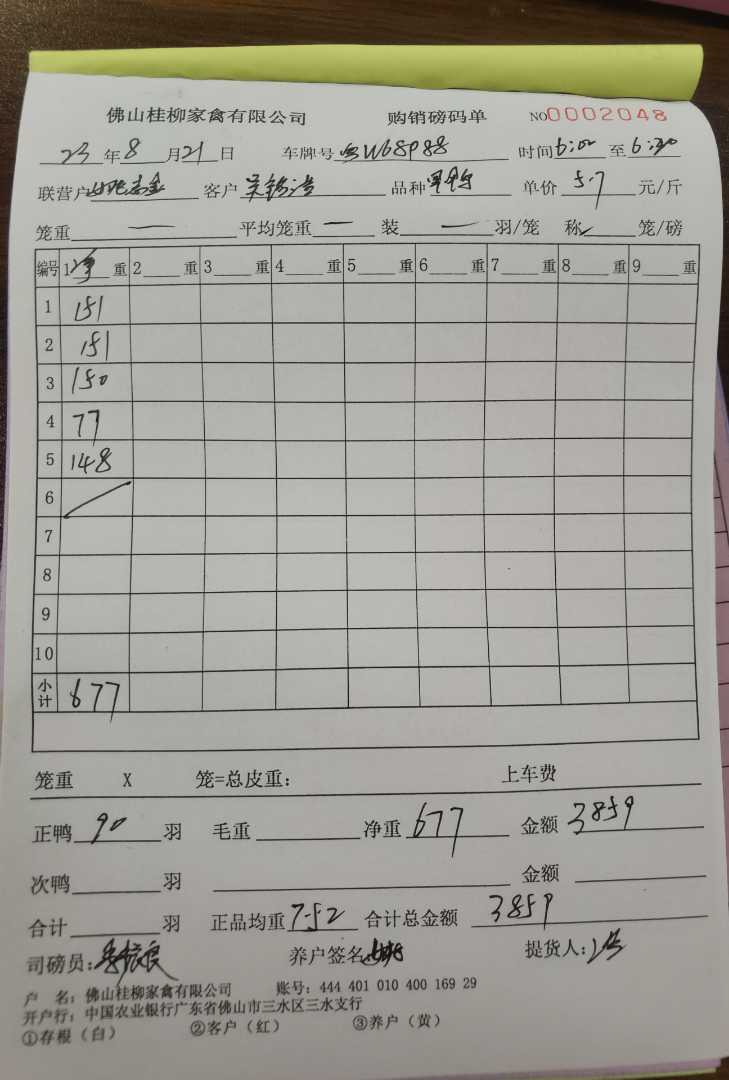 佛山桂柳家禽有限公司 购销磅码单 NO0002048
23年8月21日 车牌号W68P88 时间6:00至6:30
联营户 客户吴 品种 单价5.7元/斤
笼重一 平均笼重一 装一羽/笼 称笼/磅
编号 1净重 2重 3重 4重 5重 6重 7重 8重 9重
1 151
2 151
3 150
4 77
5 148
6
7
8
9
10
小计 677
笼重 X 笼=总皮重: 上车费
正鸭90羽 毛重 净重677 金额3859
次鸭羽 金额
合计羽 正品均重7.52 合计总金额3859
司磅员: 养户签名 提货人:
户 名: 佛山桂柳家禽有限公司 账号: 444 401 010 400 169 29
开户行: 中国农业银行广东省佛山市三水区三水支行
①存根(白) ②客户(红) ③养户(黄)